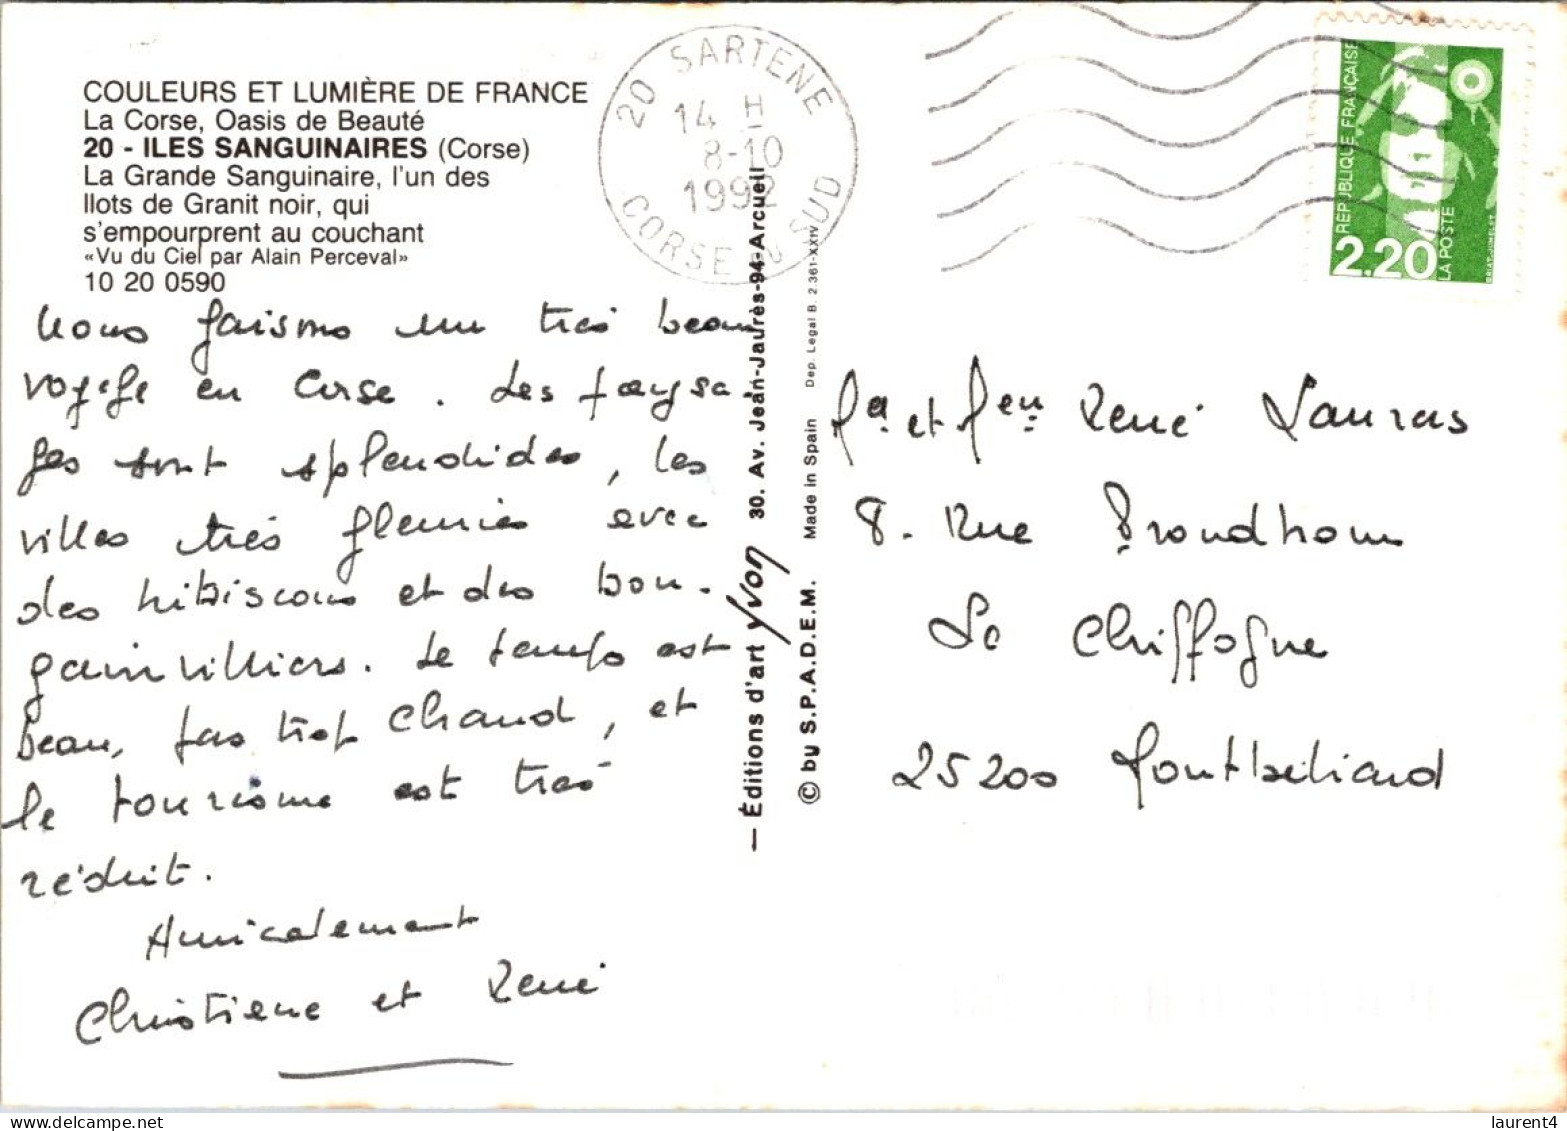 COULEURS ET LUMIÈRE DE FRANCE
La Corse, Oasis de Beauté
20 - ILES SANGUINAIRES (Corse)
La Grande Sanguinaire, l'un des
Ilots de Granit noir, qui
s'empourprent au couchant
«Vu du Ciel par Alain Perceval»
10 20 0590
Nous faisons un très beau
voyage en Corse. Les paysa-
ges sont splendides, les
villes très fleuries avec
des hibiscous et des bou-
gainvilliers. Le temps est
beau, pas trop chaud, et
le tourisme est très
réduit.
Amicalement
Christiene et René
20 SARTENE
14 H
8-10
1992
CORSE DU SUD
— Éditions d'art yvon 30. Av. Jean-Jaurès-94-Arcueil
© by S.P.A.D.E.M. Made in Spain Dep. Legal B. 2.361-XXIV
RÉPUBLIQUE FRANÇAISE
2.20
LA POSTE
BRIAT-JUMELET
et René Lauras
8. Rue Brondhom
La Chiffogne
25200 Montbéliard
laurent4